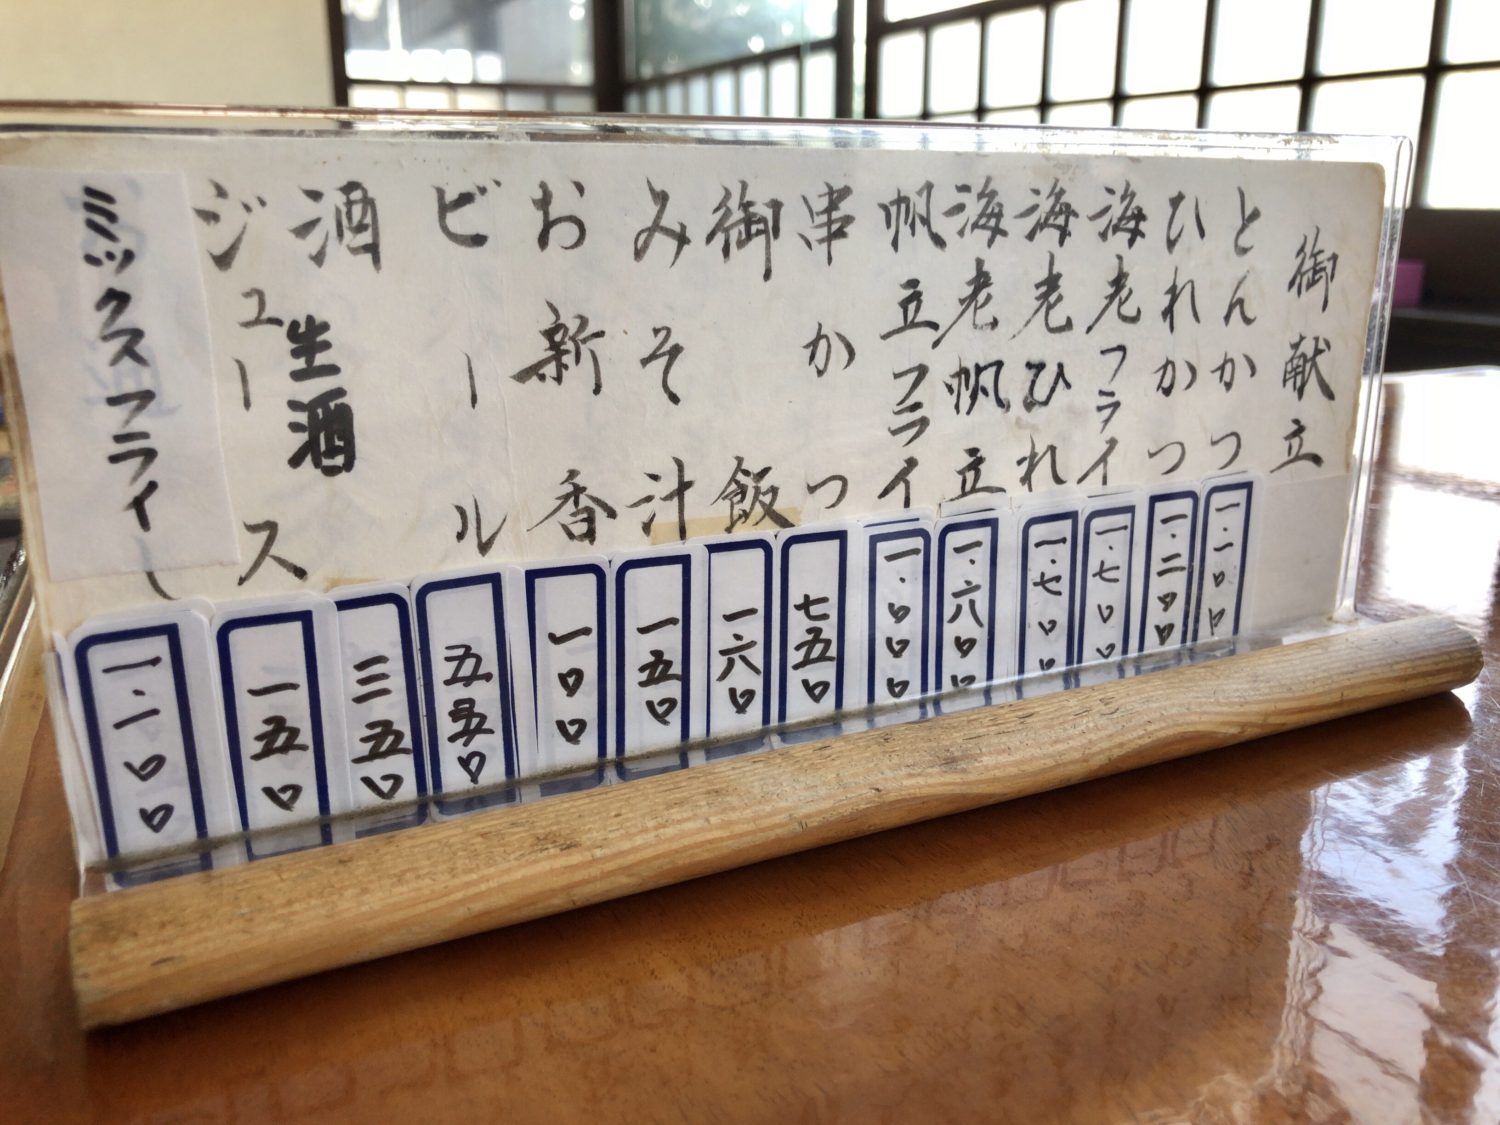 御献立
とんかつ 一.一〇〇
ひれかつ 一.二〇〇
海老フライ 一.七〇〇
海老ひれ 一.七〇〇
海老帆立 一.六〇〇
帆立フライ 一.〇〇〇
串かつ 七五〇
御飯 一六〇
みそ汁 一五〇
お新香 一〇〇
ビール 五五〇
酒 生酒 三五〇
ジュース 一五〇
ミックスフライ 一.一〇〇